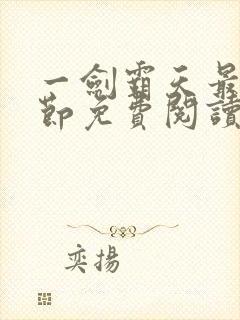 一劍霸天最
節免費閱讀
奕揚